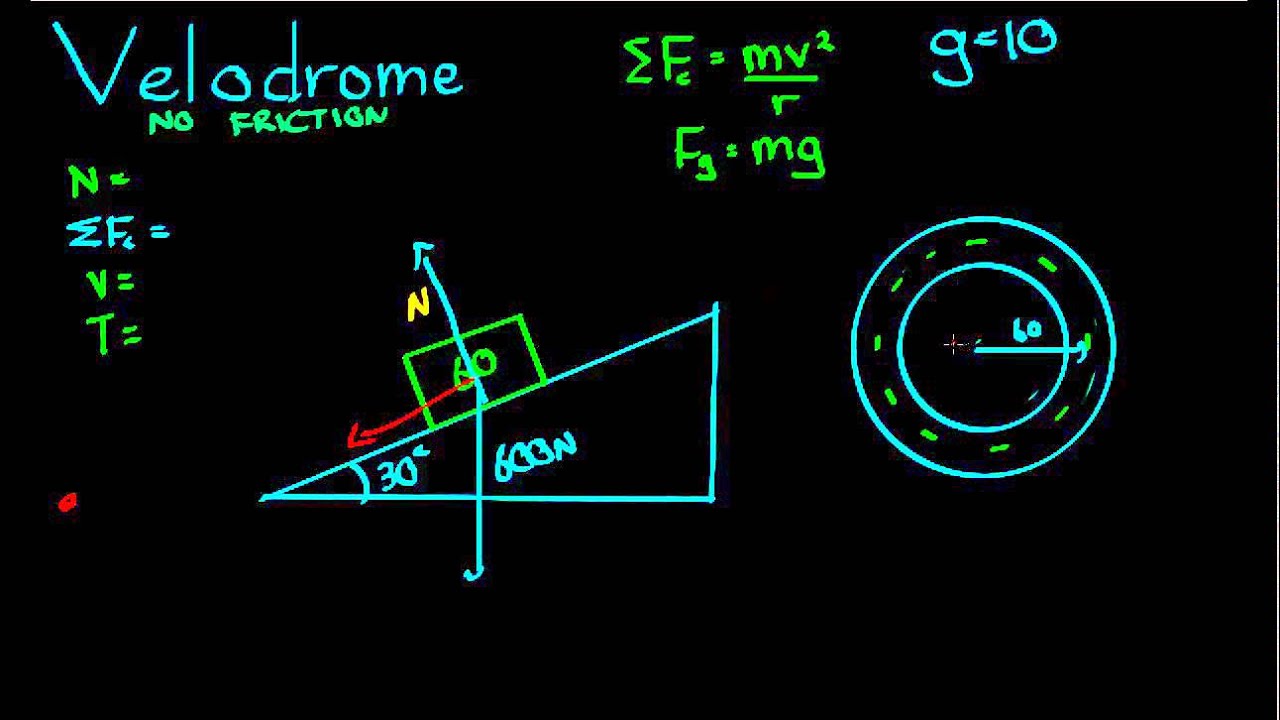 Velodrome
NO FRICTION
ΣFc = mv²/r
g=10
Fg = mg
N =
ΣFc =
v =
T =
N
60
30°
600N
60